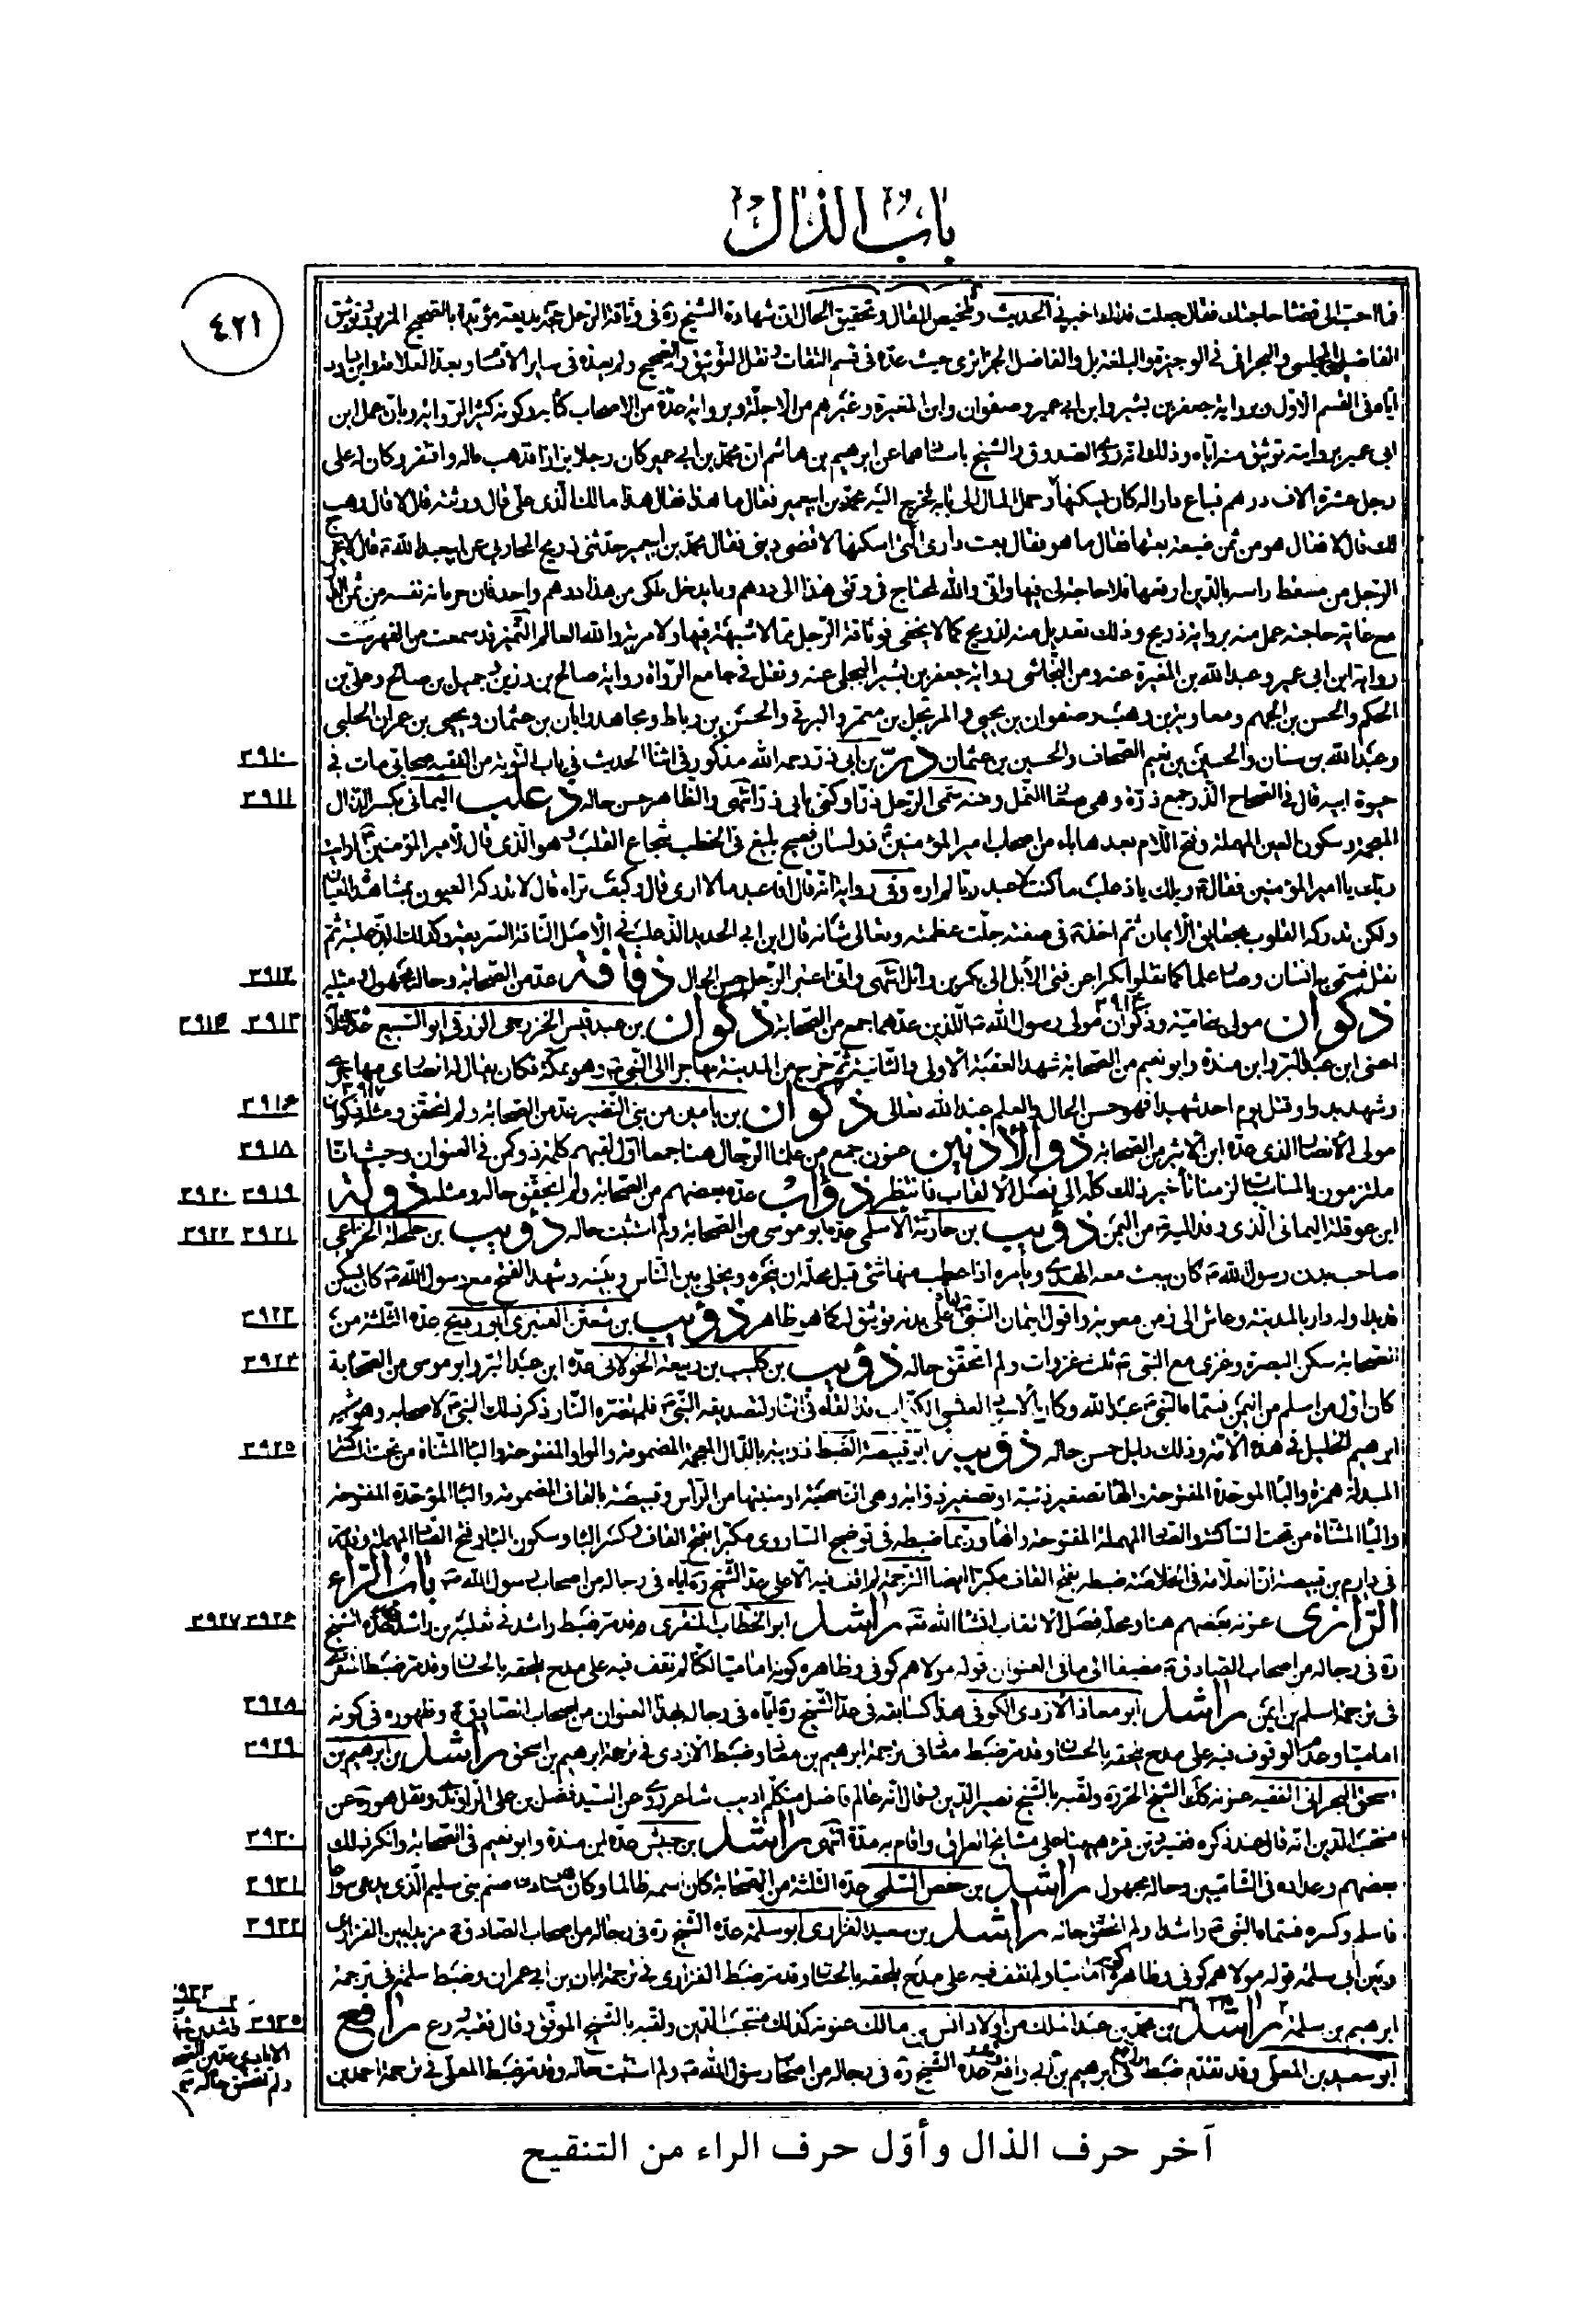 باب الذال
٤٢١
الفاضل المجلسي والبحراني في الوجيزة والبلغة بل والفاضل الجزائري حيث عدّه في قسم الثقات ونقل التوثيق
ايّاه في القسم الاوّل وبرواية جعفر بن بشير وابن ابي عمير وصفوان وابن المغيرة وغيرهم من الاجلّة وبرواية عدّة من الاصحاب كتابه وكونه كثير الرواية وبان عمل ابن
ابي عمير بروايته توثيق منه ايّاه وذلك انه روى الصدوق والشيخ باسنادهما عن ابرهيم بن هاشم ان محمّد بن ابي عمير كان رجلا بزازا فذهب ماله وافتقر وكان له على
رجل عشرة الاف درهم فباع دارا له كان يسكنها وحمل المال الى بابه فخرج اليه محمّد بن ابيعمير فقال ما هذا فقال هذا مالك الّذي علىّ قال ورثته قال لا قال وهب
لك قال لا فقال هو من ثمن ضيعة بعتها فقال ما هو فقال بعت داري الّتي اسكنها لاقضي ديني فقال محمّد بن ابيعمير حدّثني ذريح المحاربي عن ابيعبد الله ع قال لا يخرج
الرجل من مسقط راسه بالدين ارفعها فلا حاجة لي فيها واني والله لمحتاج في وقتي هذا الى درهم وما يدخل ملكي من هذا درهم واحد
مع غاية حاجته عمل منه برواية ذريح وذلك تعديل منه لذريح كما لا يخفى فوثاقة الرجل ممّا لا شبهة فيها ولا مرية والله العالم التميز قد سمعت من الفهرست
رواية ابن ابي عمير وعبد الله بن المغيرة عنه ومن النجاشي رواية جعفر بن بشير البجلي عنه ونقل في جامع الرواة رواية صالح بن رزين وجميل بن صالح وعلي بن
الحكم والحسن بن الجهم ومعاوية بن وهب وصفوان بن يحيى والمرتجل بن معمر والبرقي والحسن بن رباط ومجاهد وابان بن عثمان ويحيى بن عمران الحلبي
وعبد الله بن سنان والحسين بن نعيم الصحاف والحسين بن عثمان ذرّ بن ابي ذر رحمه الله مذكور في اثناء الحديث في باب التعزية من الفقيه صحابي مات في
٣٩١٠
حيوة ابيه قال في الصحاح الذّر جمع ذرّة وهي صغار النمل ومنه سمّى الرجل ذرّا وكنّى بابي ذر انتهى والظاهر حسن حاله ذعلب اليماني بكسر الذال
٣٩١١
المعجمة وسكون العين المهملة وفتح اللام بعدها باء من اصحاب امير المؤمنين ع ذو لسان فصيح بليغ في الخطب شجاع القلب وهو الّذي قال لامير المؤمنين ع هل رايت
ربّك يا امير المؤمنين فقال ع ويلك يا ذعلب ما كنت لاعبد ربّا لم اره وفي رواية انّه قال افاعبد ما لا ارى قال وكيف تراه قال لا تدركه العيون بمشاهدة العيان
ولكن تدركه القلوب بحقايق الايمان ثم اخذ ع في صفته جلّت عظمته وتعالى شانه قال ابن ابي الحديد الذعلب في الاصل الناقة السريعة وكذلك الذعلبة ثم
نقل فسمّي به انسان وصار علما كما نقلوا بكرا عن فتى الابل الى بكر بن وائل انتهى واني اعتبر الرجل حسن الحال ذفافة عدّ من الصحابة وحاله مجهول ومثله
٣٩١٢
ذكوان مولى بني اميّة وذكوان مولى رسول الله ص الّلذين عدّهما جمع من الصحابة ذكوان بن عبد قيس الخزرجي الزرقي ابو السبع عدّه الثلاثة
٣٩١٣ ٣٩١٤
اعني ابن عبد البر وابن مندة وابو نعيم من الصحابة شهد العقبة الاولى والثانية ثم خرج من المدينة مهاجرا الى النبي ص وهو بمكّة فكان يقال له انصاري مهاجري
وشهد بدرا وقتل يوم احد شهيدا فهو حسن الحال والعلم عند الله تعالى ذكوان بن يامين من بني النضير عدّ من الصحابة ولم اتحقق ومثله ذكوان
٣٩١۶
مولى الانصار الذي عدّه ابن الاثير من الصحابة ذو الاذنين عنون جمع من علماء الرجال هنا جمعا اوّل لقبهم كلمة ذو لكن في العنوان وحيث انّا
٣٩١٨
ملتزمون بالمناسبات الزمنا تأخير ذلك كلّه الى فصل الالقاب فانتظر ذؤاب عدّه بعضهم من الصحابة ولم اتحقق حاله ومثله ذوالة
٣٩١٩ ٣٩٢٠
ابن عوقلة اليماني الّذي وفد اليه ص من اليمن ذؤيب بن حارثة الاسلمي عدّه ابو موسى من الصحابة ولم استثبت حاله ذؤيب بن حلحلة الخزاعي
٣٩٢١ ٣٩٢٢
صاحب بدن رسول الله ص كان يبعث معه الهدي ويأمره اذا عطب منها شئ قبل محلّه ان ينحره ويخلي بين الناس وبينه وشهد الفتح مع رسول الله ص كان يسكن
قديدا وله دار بالمدينة وعاش الى زمن معوية واقول ايتمان النبي ص اياه على بدنه توثيق له كما هو ظاهر ذؤيب بن شعثن العنبري ابو رديح عدّه الثلثة من
٣٩٢٣
الصحابة سكن البصرة وغزى مع النبي ص ثلث غزوات ولم اتحقق حاله ذؤيب بن كليب بن ربيعة الخولاني عدّه ابن عبد البر وابو موسى من الصحابة
٣٩٢٤
كان اوّل من اسلم من اليمن فسمّاه النبي ص عبد الله وكان الاسود العنسي الكذّاب قد القاه في النار لتصديقه النبي ص فلم تضرّه النار ذكر ذلك النبي ص لاصحابه وهو شبيه
ابرهيم الخليل في هذه الامّة وذلك دليل حسن حاله ذؤيب ابو قبيصة الضبط ذؤيب بالذال المعجمة المضمومة والواو المفتوحة والياء المثنّاة من تحت الساكنة
٣٩٢٥
المبدلة همزة والباء الموحّدة المفتوحة
والياء المثنّاة من تحت الساكنة والصاد المهملة المفتوحة والهاء وربّما ضبطه في توضيح الساروي مكبّرا بفتح القاف وكسر الباء وسكون الياء وفتح الصاد المهملة
باب الراء
الرازي عنونه بعضهم هنا ومحلّه فصل الالقاب انشاء الله تع راشد ابو الخطاب المنقري قد مرّ ضبط راشد في ثعلبة بن راشد عدّه الشيخ
٣٩٢۶ ٣٩٢٧
ره في رجاله من اصحاب الصادق ع مضيفا الى ما في العنوان قوله مولاهم كوفي وظاهره كونه اماميّا لكنّا لم نقف فيه على مدح يلحقه بالحسان وقد مرّ ضبط المنقري
في ترجمة اسلم بن ايمن راشد ابو معاذ الازدي الكوفي هذا كسابقه في عدّ الشيخ ره ايّاه في رجاله بهذا العنوان من اصحاب الصادق ع وظهوره في كونه
٣٩٢٨
اماميّا وعدم الوقوف فيه على مدح يلحقه بالحسان وقد مرّ ضبط معاذ في ترجمة ابرهيم بن معاذ وضبط الازدي في ترجمة ابرهيم بن اسحق راشد بن ابرهيم بن
٣٩٢٩
اسحق البحراني الفقيه عنونه كك الشيخ الحرّ ره ولقبه بالشيخ نصير الدّين وقال انّه عالم فاضل متكلّم اديب شاعر روى عن السيّد فضل بن علي الراوندي ونقل هو ره عن
منتجب الدّين انّه قال عند ذكره فقيه ديّن قرء ههنا على مشايخ العراق واقام به مدّة انتهى راشد بن حبيش عدّه ابن مندة وابو نعيم في الصحابة وانكر ذلك
٣٩٣٠
بعضهم وعداده في الشاميّين وحاله مجهول راشد بن حفص السلمي عدّه الثلثة من الصحابة كان اسمه ظالما وكان سادن صنم بني سليم الّذي يدعى سواعا
٣٩٣١
فاسلم وكسره فسمّاه النبي ص راشدا ولم اتحقق حاله راشد بن سعيد الفزاري ابو سلمة عدّه الشيخ ره في رجاله من اصحاب الصادق ع مزيدا بين الفزاري
٣٩٣٢
وبين ابي سلمة قوله مولاهم كوفي وظاهره كونه اماميّا ولم نقف فيه على مدح يلحقه بالحسان وقد مرّ ضبط الفزاري في ترجمة ابان بن ابي عمران وضبط سلمة في ترجمة
ابرهيم بن سلمة راشد بن محمد بن عبد الملك من اولاد انس بن مالك عنونه كذلك منتجب الدّين ولقبه بالشيخ الموفّق وقال فقيه ورع رافع
٣٩٣٥
ابو سعيد بن المعلّى وقد تقدّم ضبط رافع في ابرهيم بن ابي رافع عدّه الشيخ ره في رجاله من اصحاب رسول الله ص ولم استثبت حاله وقد مرّ ضبط المعلّى في ترجمة احمد بن
آخر حرف الذال وأوّل حرف الراء من التنقيح